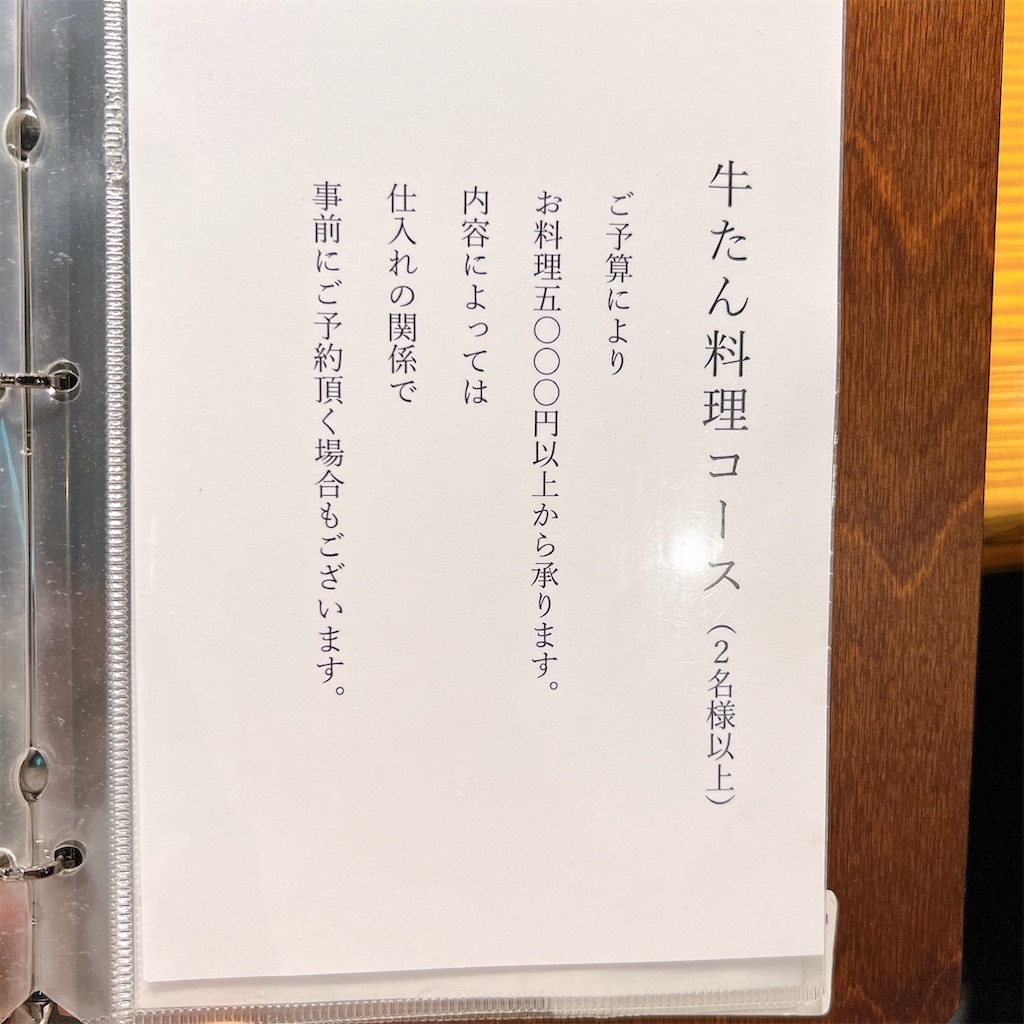 牛たん料理コース（2名様以上）
ご予算により
お料理五〇〇〇円以上から承ります。
内容によっては
仕入れの関係で
事前にご予約頂く場合もございます。